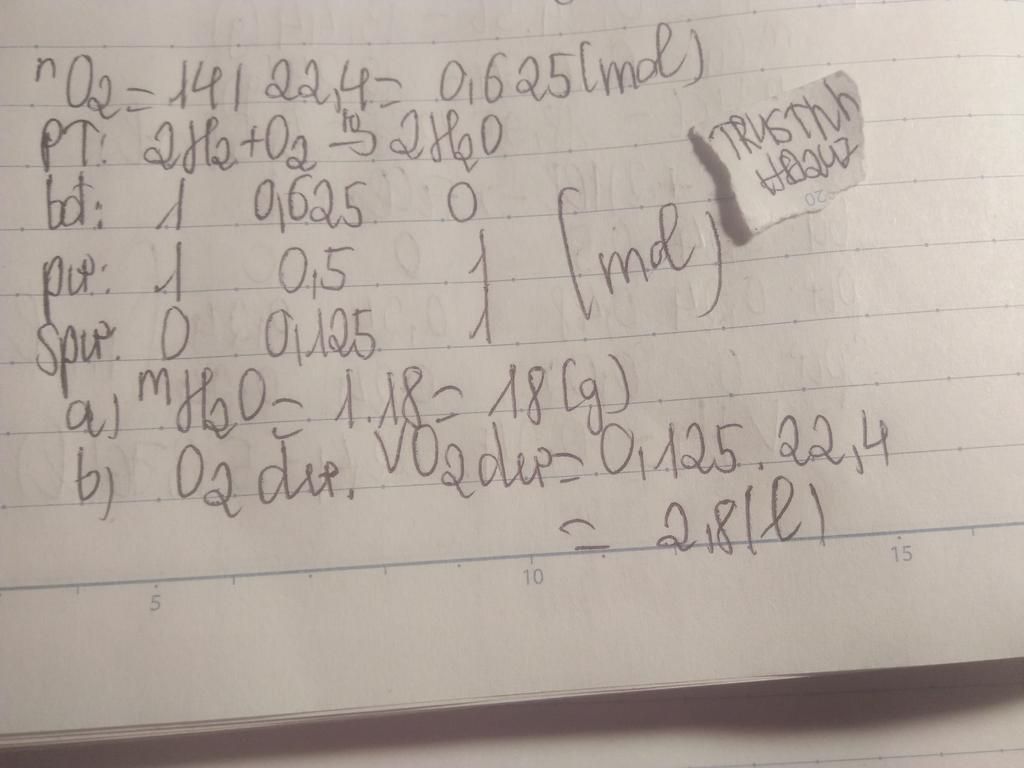 nO2 = 14/ 22,4 = 0,625 (mol)
PT: 2H2 + O2 →tº 2H2O
bđ: 1 0,625 0
pư: 1 0,5 1 (mol)
Spư: 0 0,125 1
a) mH2O = 1.18 = 18 (g)
b) O2 dư. VO2 dư = 0,125 . 22,4
= 2,8 (l)
5 10 15
20